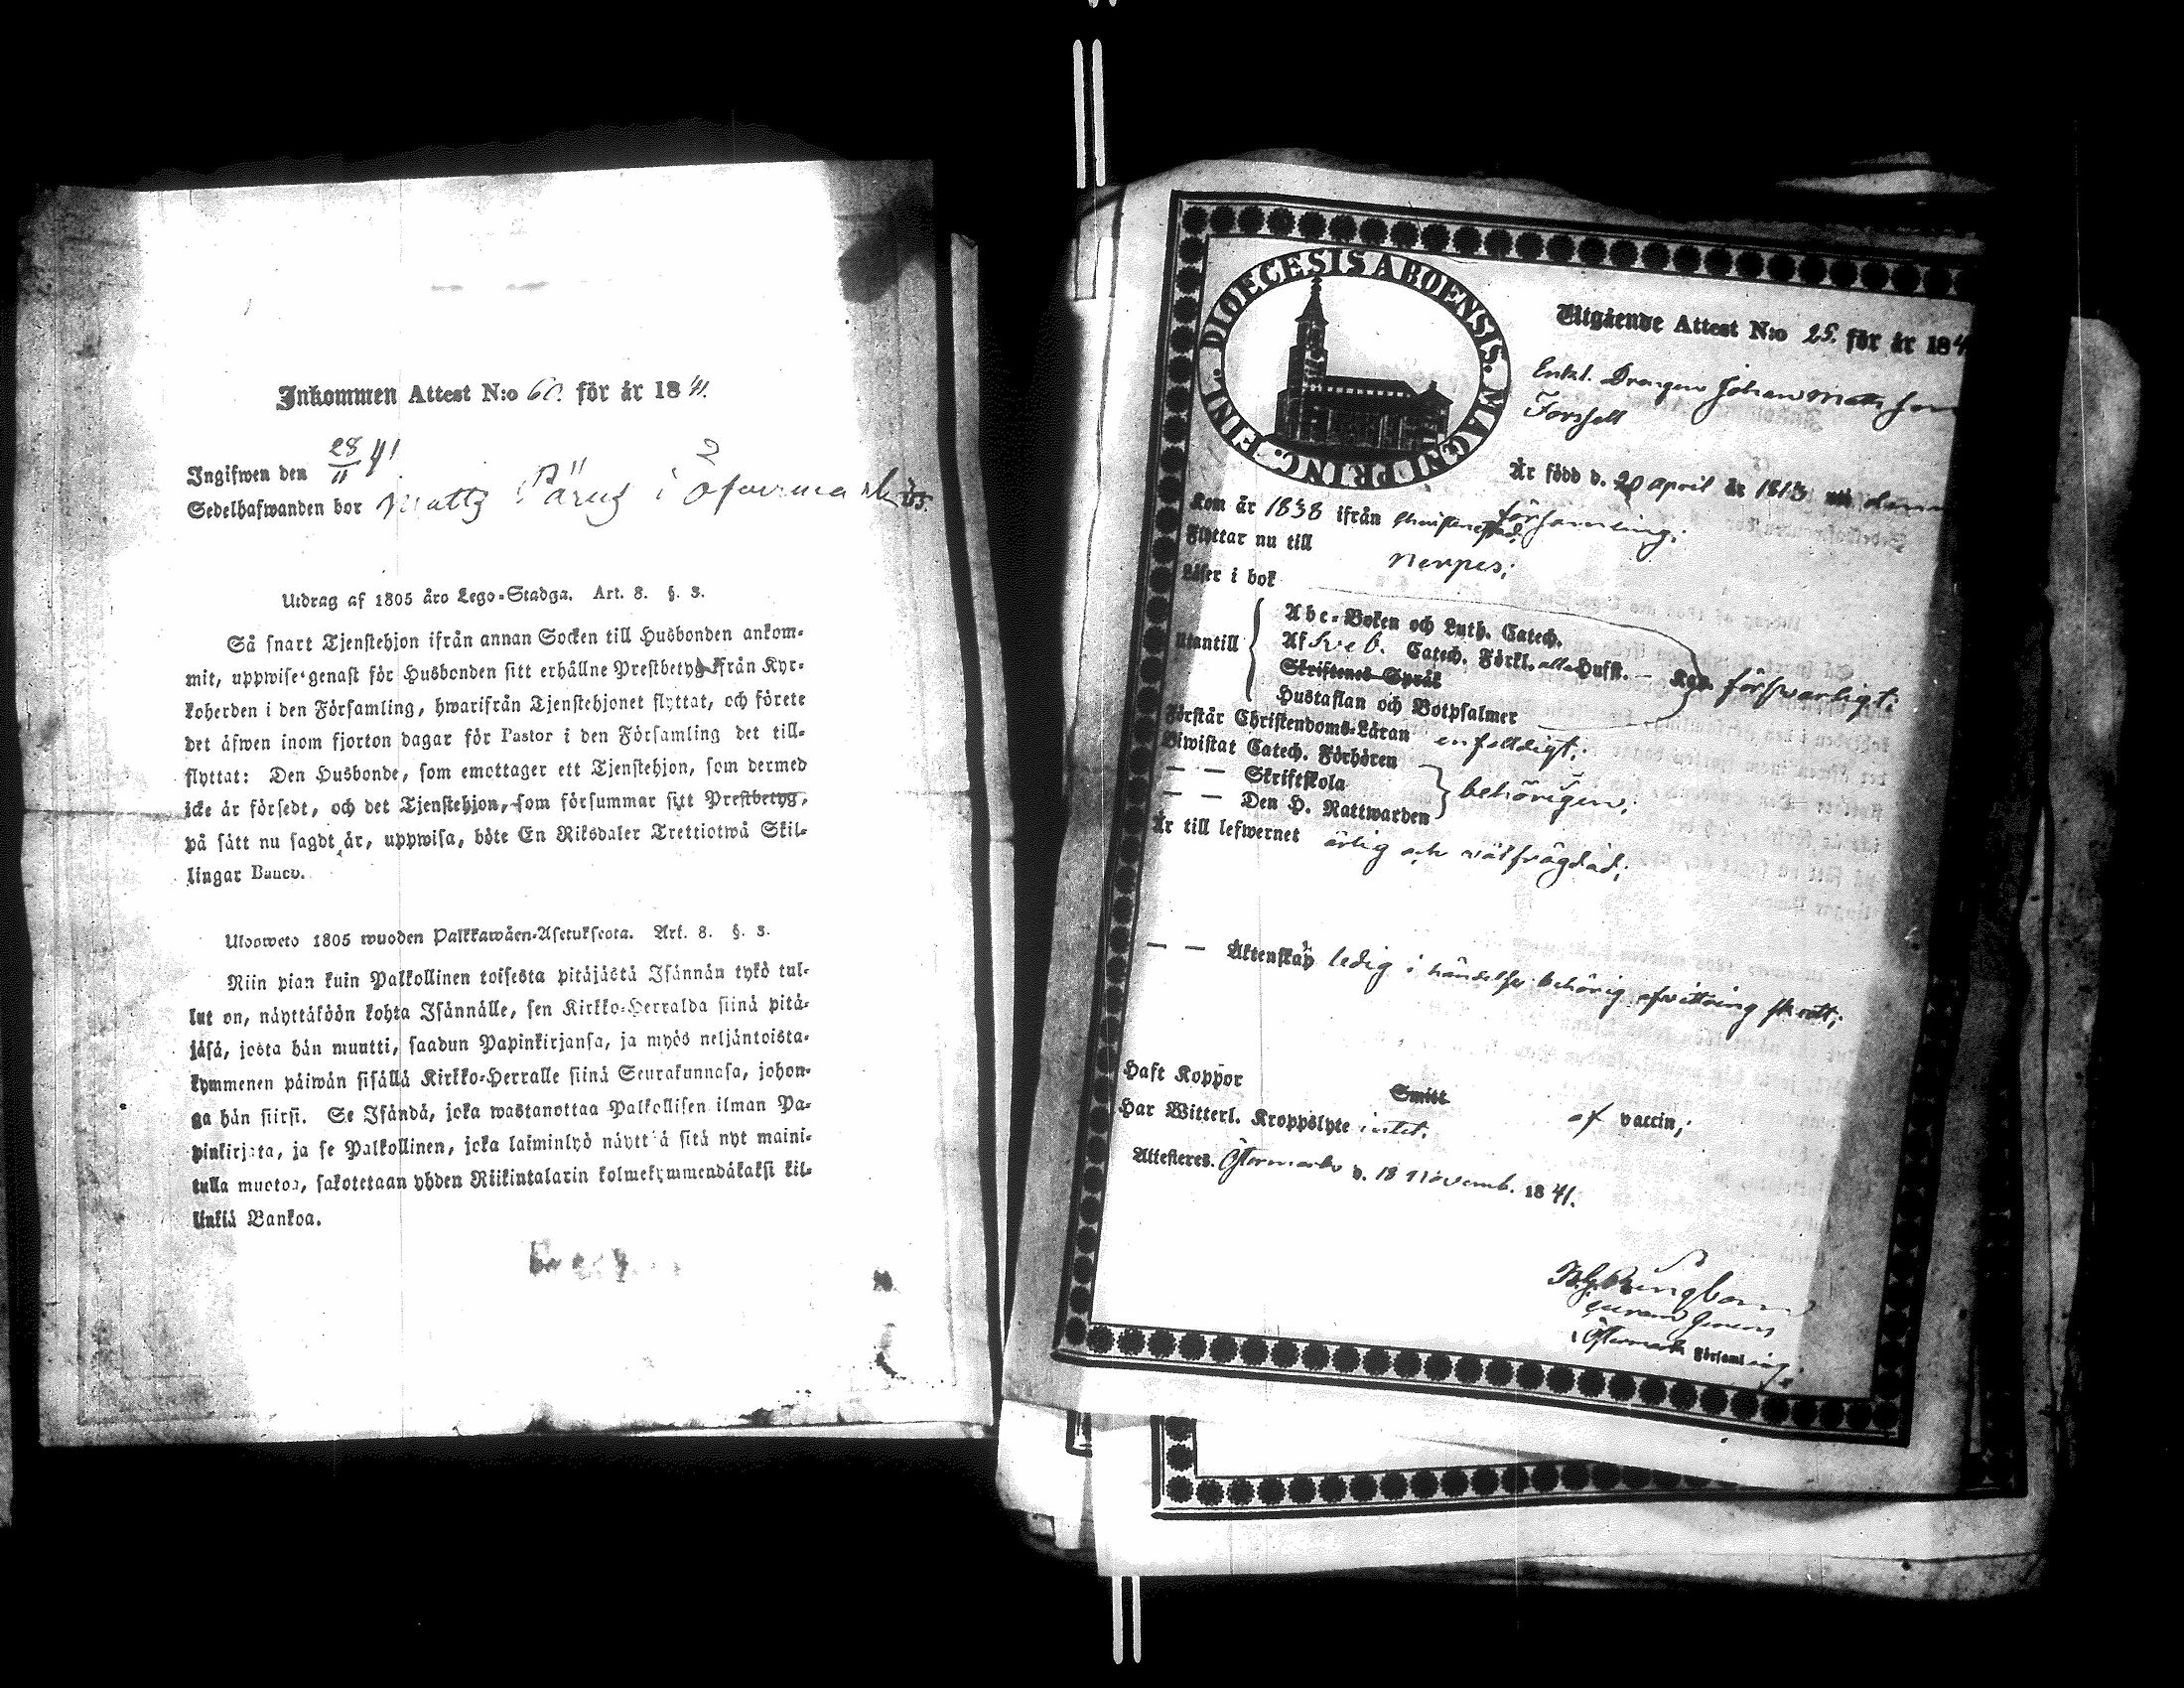 Inkommen Attest N:o 60. för år 1841.
Ingifwen den 28/11 41
Sedelhafwanden bor Mattz Pärus i Öfvermark
Utdrag af 1805 års Lego-Stadga. Art. 8. §. 3.
Så snart Tjenstehjon ifrån annan Socken till Husbonden ankom-
mit, uppwise genast för Husbonden sitt erhållne Prestbetyg ifrån Kyr-
koherden i den Församling, hwarifrån Tjenstehjonet flyttat, och förete
det äfwen inom fjorton dagar för Pastor i den Församling det till-
flyttat: Den Husbonde, som emottager ett Tjenstehjon, som dermed
icke är försedt, och det Tjenstehjon, som försummar sitt Prestbetyg,
på sätt nu sagdt är, uppwisa, böte En Riksdaler Trettiotwå Skil-
lingar Banco.
Uloosweto 1805 wuoden Palkkawäen-Asetuksesta. Art. 8. §. 3.
Niin pian kuin Palkollinen toisesta pitäjästä Isännän tykö tul-
lut on, näyttäköön kohta Isännälle, sen Kirkko-Herralda siinä pitä-
jäsä, josta hän muutti, saadun Papinkirjansa, ja myös neljäntoista-
kymmenen päiwän sisällä Kirkko-Herralle siinä Seurakunnasa, johon-
ga hän siirsi. Se Isändä, joka wastanottaa Palkollisen ilman Pa-
pinkirjata, ja se Palkollinen, joka laiminlyö näyttää sitä nyt maini-
tulla muotoa, sakotetaan yhden Riikintalarin kolmekymmendäkaksi kil-
linkiä Bankoa.
DIOECESIS ABOENSIS. MAGNI PRINC. FINL.
Utgående Attest N:o 25. för år 184
Enkl. Drengen Johan Matsson
Forsell
Är född d. 20 April år 1813 uti denna
församling;
Kom år 1838 ifrån Christinestad
Flyttar nu till Nerpes;
Läser i bok
Utantill
Abc-Boken och Luth. Catech.
Af Sveb. Catech. Förkl. alla Hufst. — försvarligt;
Skriftenes Språk
Hustaflan och Botpsalmer
Förstår Christendoms-Läran enfaldigt;
Biwistat Catech. Förhören
— — Skriftskola behörigen;
— — Den H. Nattwarden
Är till lefwernet ärlig och välfrägdad;
— — Äktenskap ledig i händelse behörig afvittring skett;
Haft Koppor Smitt af vaccin;
Har Witterl. Kroppslyte intet.
Attesteres. Östermark d. 18 Novemb. 1841.
Ringbom
i Östermark Församling.